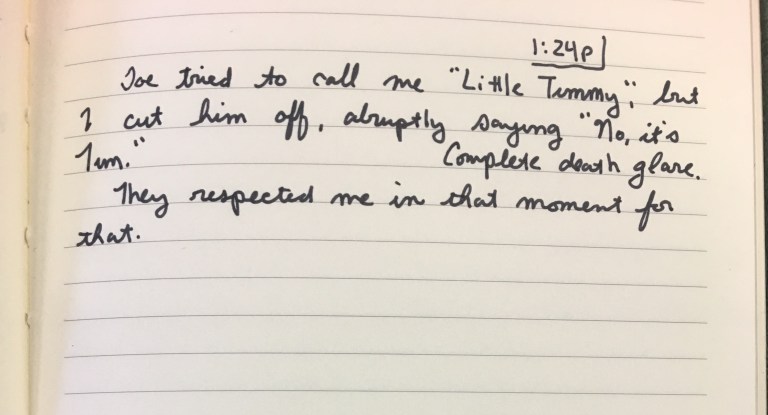 1:24p
Joe tried to call me "Little Timmy", but
I cut him off, abruptly saying "No, it's
Tim." Complete death glare.
They respected me in that moment for
that.